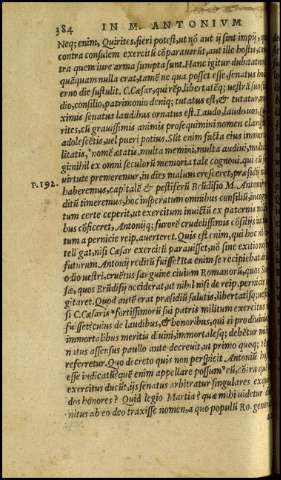 384 IN M. ANTONIVM
Neq; enim, Quirites, fieri potest, ut nō aut ij sint impij, qui
contra consulem exercitū cōparauerūt, aut ille hostis, cō
tra quem iure arma sumpta sunt. Hanc igitur dubitationē
quēquam nulla erat, tamē ne qua posset esse, senatus
erno die sustulit. C. Cæsar, qui reip. libertatēq; uestrā
dio, consilio, patrimonio deniq; tutatus est, & tutatur,
ximis senatus laudibus ornatus est. Laudo, laudo uos, Qui
rites, cū grauissimis animis prosequimini nomen
adolescētis, uel pueri potius. Sunt enim facta eius immor
litatis, nomē ætatis. multa memini, multa audiui, multa
gi: nihil ex omni seculorū memoria tale cognoui. qui cū
uitute premeremur, in dies malum cresceret, præsidij
P. 192. haberemus, capitalē & pestiferū Brūdisio M. Antonij
ditū timeremus, hoc insperatum omnibus consiliū, incog
tum certe ceperit, ut exercitum inuictū ex paternis
bus cōficeret, Antonijq; furorē crudelissimis cōsilijs
tum a pernicie reip. auerteret. Quis est enim, qui hoc nō
telligat, nisi Cæsar exercitū parauisset, nō sine exitio
futurum Antonij reditū fuisse? Ita enim se recipiebat
odio uestri, cruētus sanguine ciuium Romanorū, quos
sæ, quos Brūdisij occiderat, ut nihil nisi de reip. pernicie
gitaret. Quod autē erat præsidiū salutis, libertatisq;
si C. Cæsaris fortissimorū sui patris militum exercitus
fuisset? cuius de laudibus, & honoribus, qui ei pro diuinis
immortalibus meritis diuini, immortalesq; debētur
natus assensus paullo ante decreuit, ut primo quoq;
referretur. Quo decreto quis non perspicit Antonium
esse iudicatū? quē enim appellare possum9 eū, cōtra quē
exercitus ducūt, ijs senatus arbitratur singulares exqui
dos honores? Quid? legio Martia? quæ mihi uidetur
nitus ab eo deo traxisse nomen, a quo populū Ro. gene